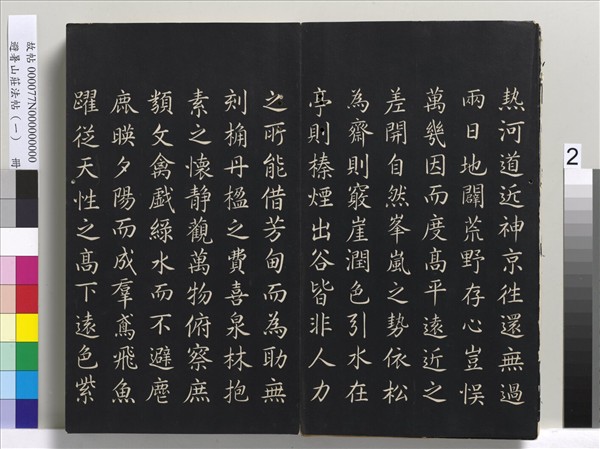 熱河道近神京徃還無過
兩日地闢荒野存心豈悮
萬幾因而度髙平遠近之
差開自然峯嵐之勢依松
為齋則竅崖潤色引水在
亭則榛煙出谷皆非人力
之所能借芳甸而為助無
刻桷丹楹之費喜泉林抱
素之懷靜觀萬物俯察庶
類文禽戲綠水而不避麀
鹿暎夕陽而成羣鳶飛魚
躍從天性之髙下遠色紫
故帖 000077N000000000
避暑山莊法帖（一） 冊
2